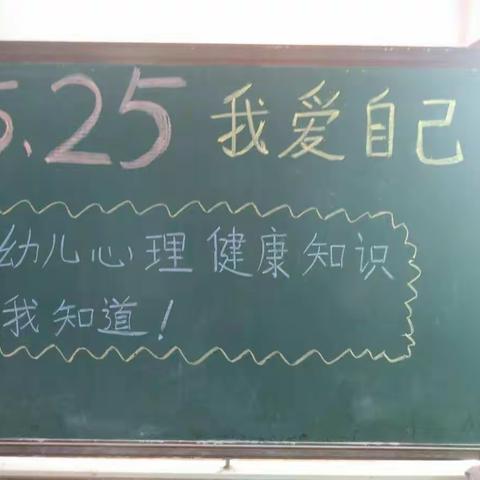 5.25 我爱自己
幼儿心理健康知识
我知道!